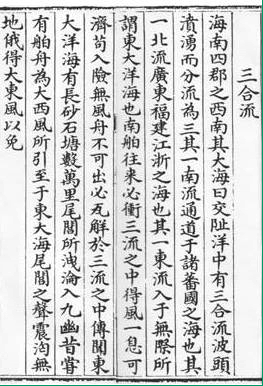 三合流
海南四郡之西南其大海曰交阯洋中有三合流波頭
濆湧而分流為三其一南流通道于諸蕃國之海也其
一北流廣東福建江浙之海也其一東流入于無際所
謂東大洋海也南舶往來必衝三流之中得風一息可
濟苟入險無風舟不可出必瓦解於三流之中傳聞東
大洋海有長砂石塘數萬里尾閭所洩淪入九幽昔嘗
有舶舟為大西風所引至于東大海尾閭之聲震洶無
地俄得大東風以免